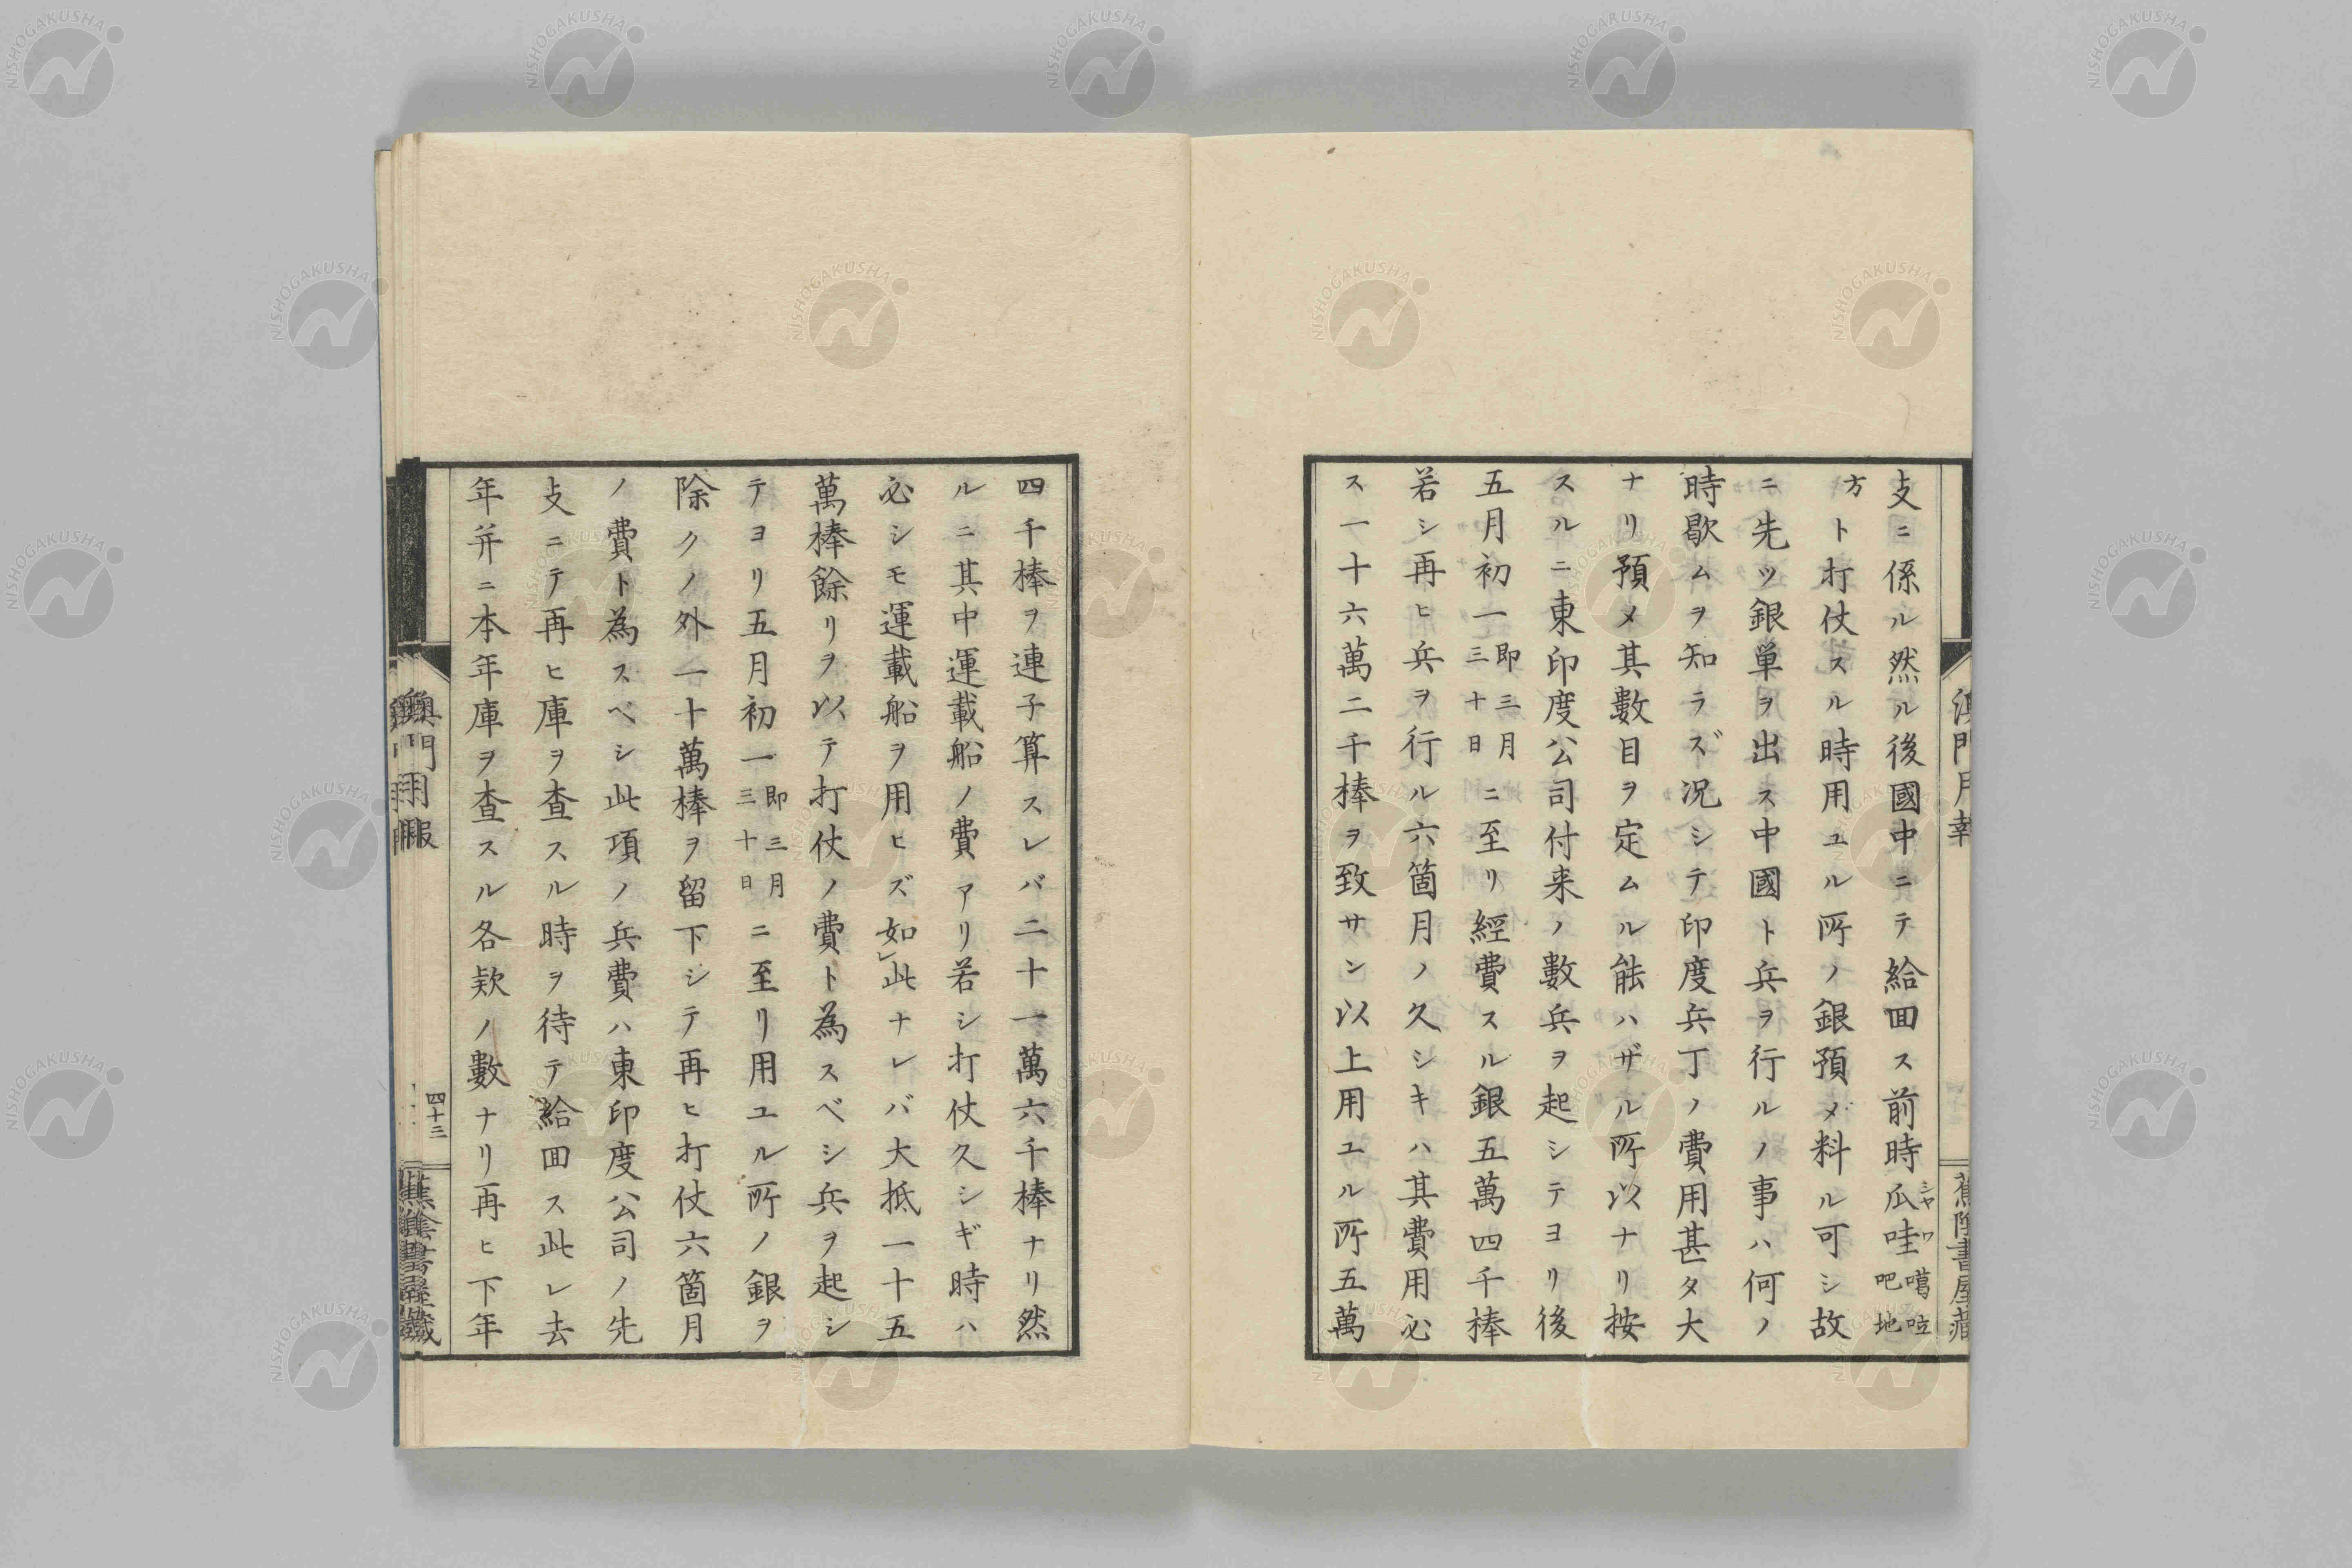 支ニ係ル然ル後國中ニテ給回ス前時瓜哇噶𠯁吧地
方ト打仗スル時用ユル所ノ銀預メ料ル可シ故
ニ先ツ銀単ヲ出ス中國ト兵ヲ行ルノ事ハ何ノ
時歇ムヲ知ラズ況シテ印度兵丁ノ費用甚タ大
ナリ預メ其數目ヲ定ムル能ハザル所以ナリ按
スルニ東印度公司付来ノ數兵ヲ起シテヨリ後
五月初一即三月三十日ニ至リ經費スル銀五萬四千棒
若シ再ヒ兵ヲ行ル六箇月ノ久シキハ其費用必
ス一十六萬二千棒ヲ致サン以上用ユル所五萬
四千棒ヲ連子算スレバ二十一萬六千棒ナリ然
ルニ其中運載船ノ費アリ若シ打仗久シギ時ハ
必シモ運載船ヲ用ヒズ如レ此ナレバ大抵一十五
萬棒餘リヲ以テ打仗ノ費ト為スベシ兵ヲ起シ
テヨリ五月初一即三月三十日ニ至リ用ユル所ノ銀ヲ
除クノ外一十萬棒ヲ留下シテ再ヒ打仗六箇月
ノ費ト為スベシ此項ノ兵費ハ東印度公司ノ先
支ニテ再ヒ庫ヲ査スル時ヲ待テ給回ス此レ去
年并ニ本年庫ヲ査スル各款ノ數ナリ再ヒ下年
澳門月報
四十三
蕉陰書屋藏
NISHOGAKUSHA